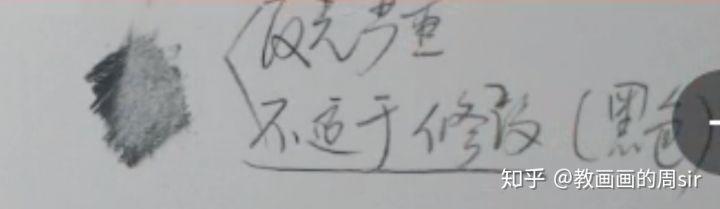 反光严重
不适于修改(黑色)
知乎 @教画画的周sir